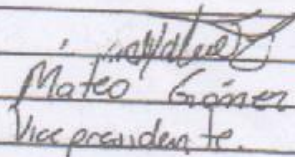 Mateo Gómez
Vicepresidente.